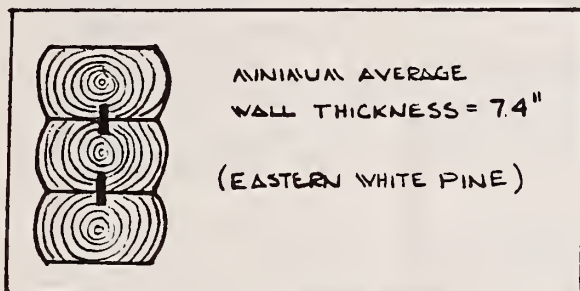 MINIMUM AVERAGE
WALL THICKNESS = 7.4"
(EASTERN WHITE PINE)